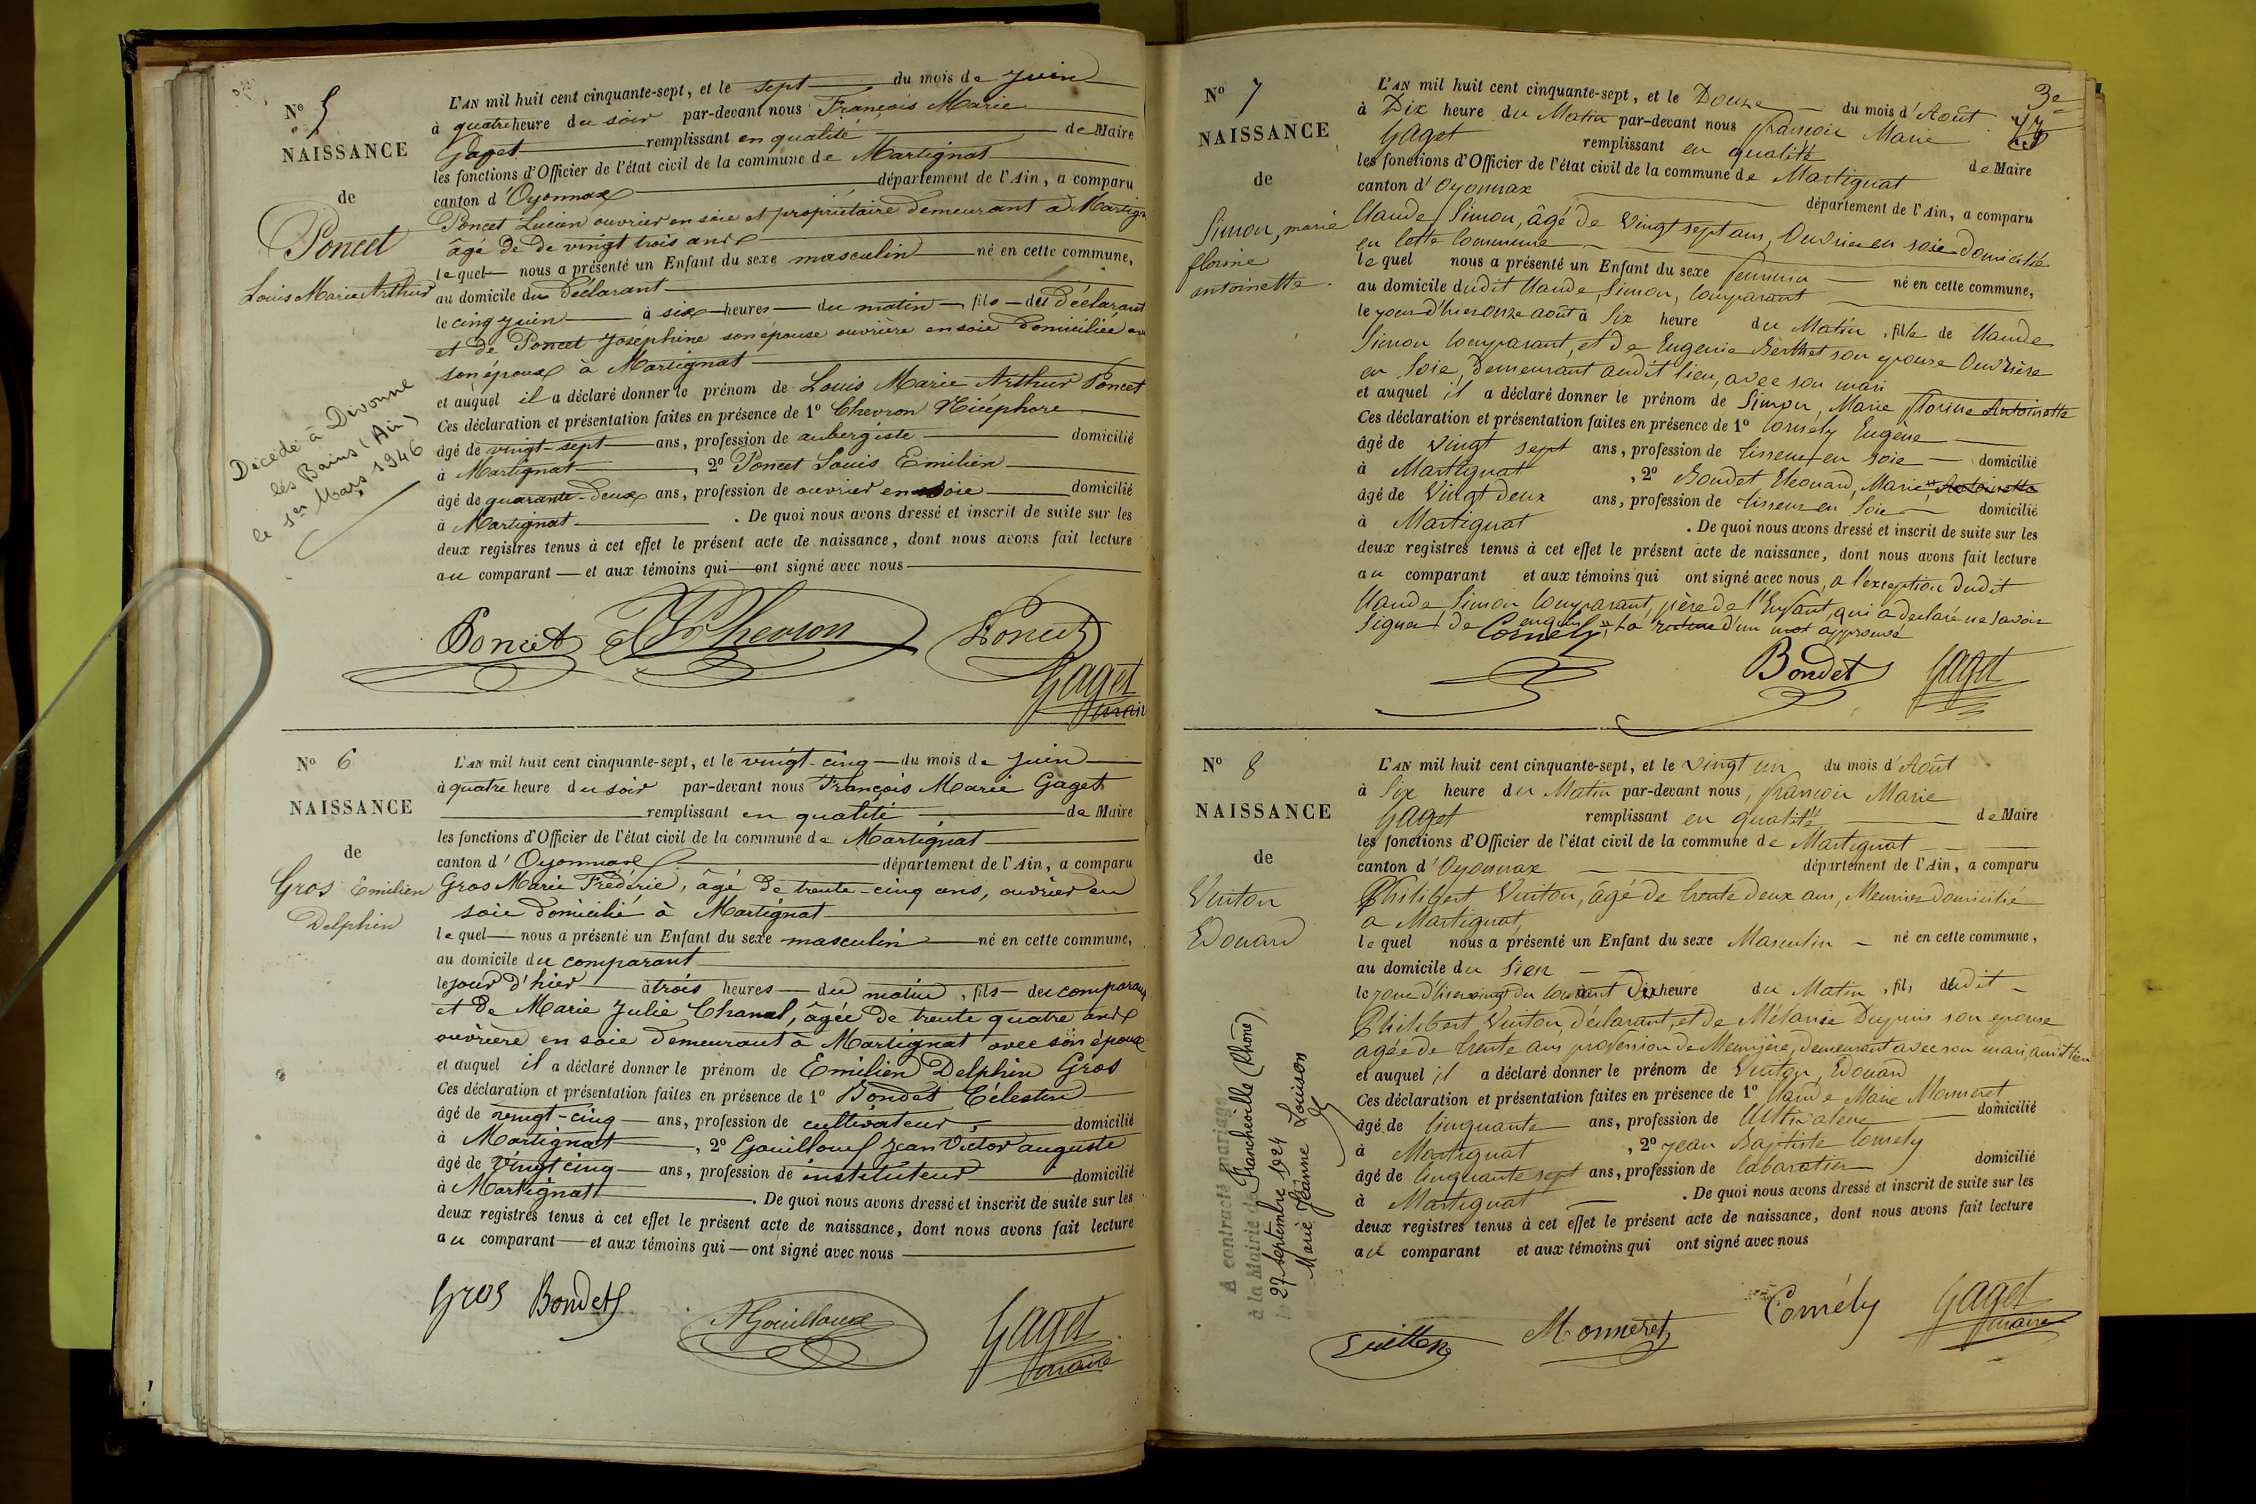 N° 5
NAISSANCE
de
Poncet
Louis Marie Arthur
Décédé à Divonne
les Bains (Ain)
le 1er Mars 1946
L'AN mil huit cent cinquante-sept, et le sept du mois de Juin
à quatre heure du soir par-devant nous François Marie
Gaget remplissant en qualité de Maire
les fonctions d'Officier de l'état civil de la commune de Martignat
canton d'Oyonnax département de l'Ain, a comparu
Poncet Lucien ouvrier en soie et propriétaire demeurant à Martign
âgé de de vingt trois ans
lequel nous a présenté un Enfant du sexe masculin né en cette commune,
au domicile du déclarant
le cinq Juin à six heures du matin, fils du déclarant
et de Poncet Joséphine son épouse ouvrière en soie domiciliée
son époux à Martignat
et auquel il a déclaré donner le prénom de Louis Marie Arthur Poncet
Ces déclaration et présentation faites en présence de 1° Chevron Nicéphore
âgé de vingt-sept ans, profession de aubergiste domicilié
à Martignat, 2° Poncet Louis Emilien
âgé de quarante-deux ans, profession de ouvrier en soie domicilié
à Martignat. De quoi nous avons dressé et inscrit de suite sur les
deux registres tenus à cet effet le présent acte de naissance, dont nous avons fait lecture
au comparant et aux témoins qui ont signé avec nous
Poncet Chevron Poncet
Gaget
maire
N° 6
NAISSANCE
de
Gros Emilien
Delphin
L'AN mil huit cent cinquante-sept, et le vingt-cinq du mois de Juin
à quatre heure du soir par-devant nous François Marie Gaget
remplissant en qualité de Maire
les fonctions d'Officier de l'état civil de la commune de Martignat
canton d'Oyonnax département de l'Ain, a comparu
Gros Marie Frédéric, âgé de trente-cinq ans, ouvrier en
soie domicilié à Martignat
lequel nous a présenté un Enfant du sexe masculin né en cette commune,
au domicile du comparant
le jour d'hier à trois heures du matin, fils du comparant
et de Marie Julie Chanal, âgée de trente quatre ans
ouvrière en soie demeurant à Martignat avec son époux
et auquel il a déclaré donner le prénom de Emilien Delphin Gros
Ces déclaration et présentation faites en présence de 1° Bondet Célestin
âgé de vingt-cinq ans, profession de cultivateur domicilié
à Martignat, 2° Gouilloux Jean Victor auguste
âgé de vingt cinq ans, profession de instituteur domicilié
à Martignat. De quoi nous avons dressé et inscrit de suite sur les
deux registres tenus à cet effet le présent acte de naissance, dont nous avons fait lecture
au comparant et aux témoins qui ont signé avec nous
Gros Bondet Gouilloux Gaget
maire
3e
N° 7
NAISSANCE
de
Simon, marie
florine
antoinette.
L'AN mil huit cent cinquante-sept, et le Douze du mois d'Août
à Dix heure du Matin par-devant nous François Marie
Gaget remplissant en qualité de Maire
les fonctions d'Officier de l'état civil de la commune de Martignat
canton d'Oyonnax département de l'Ain, a comparu
Claude Simon, âgé de vingt sept ans, Ouvrier en soie domicilié
en cette Commune
lequel nous a présenté un Enfant du sexe feminin né en cette commune,
au domicile dudit Claude Simon, Comparant
le jour d'hier onze août à Six heure du Matin, fille de Claude
Simon Comparant, et de Eugenie Berthet son epouse Ouvrière
en Soie, demeurant audit lieu, avec son mari
et auquel il a déclaré donner le prénom de Simon, Marie Florine Antoinette
Ces déclaration et présentation faites en présence de 1° Cornely Eugène
âgé de vingt sept ans, profession de tisseur en soie domicilié
à Martignat, 2° Bondet Eléouard, Marie, Antoinette
âgé de Vingt deux ans, profession de tisseur en Soie domicilié
à Martignat. De quoi nous avons dressé et inscrit de suite sur les
deux registres tenus à cet effet le présent acte de naissance, dont nous avons fait lecture
au comparant et aux témoins qui ont signé avec nous, a l'exception dudit
Claude Simon Comparant, père de l'Enfant, qui a declaré ne savoir
signer de Cornely d'un mot approuvé
Bondet Gaget
N° 8
NAISSANCE
de
Vuiton
Edouard
A contracté mariage
à la Mairie de Francheville (Rhône)
le 27 septembre 1924
Marie Jeanne Louison
L'AN mil huit cent cinquante-sept, et le vingt un du mois d'Août
à Six heure du Matin par-devant nous, François Marie
Gaget remplissant en qualité de Maire
les fonctions d'Officier de l'état civil de la commune de Martignat
canton d'Oyonnax département de l'Ain, a comparu
Philibert Vuiton, âgé de trente deux ans, Meunier domicilié
a Martignat,
lequel nous a présenté un Enfant du sexe Masculin né en cette commune,
au domicile du Sien
le jour d'hier vingt du courant Dix heure du Matin, fils dudit
Philibert Vuiton, déclarant, et de Mélanie Dupuis son epouse
agée de trente ans profession de Meunière, demeurant avec son mari, audit lieu
et auquel il a déclaré donner le prénom de Vuiton, Edouard
Ces déclaration et présentation faites en présence de 1° Claude Marie Monneret
âgé de Cinquante ans, profession de Cultivateur domicilié
à Martignat, 2° Jean Baptiste Cornely
âgé de Cinquante sept ans, profession de Cabaretier domicilié
à Martignat. De quoi nous avons dressé et inscrit de suite sur les
deux registres tenus à cet effet le présent acte de naissance, dont nous avons fait lecture
au comparant et aux témoins qui ont signé avec nous
Vuitton Monneret Cornély Gaget
maire